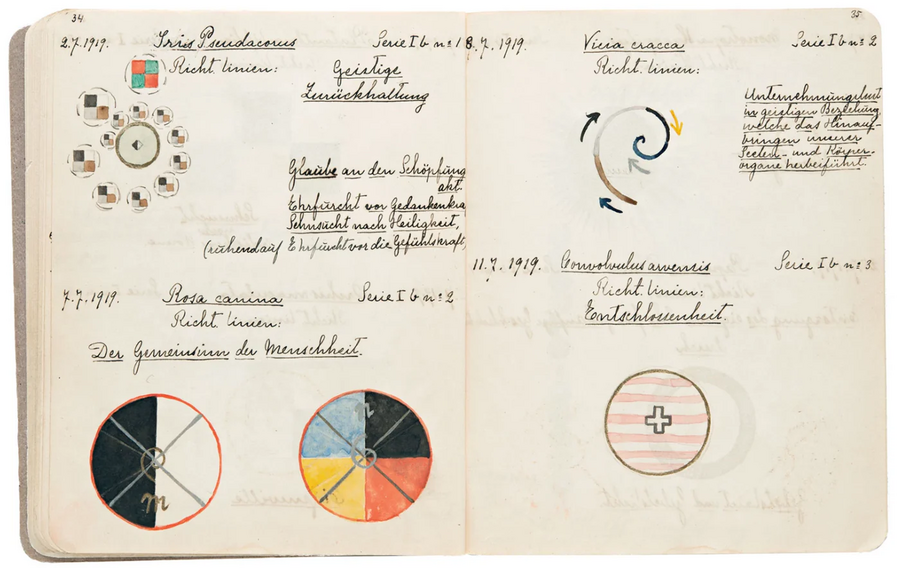 34.
2.7.1919. Iris Pseudacorus Serie I b nº 1
Richt. linien: Geistige
Zurückhaltung
Glaube an den Schöpfung
akt.
Ehrfurcht vor Gedankenkra
Sehnsucht nach Heiligkeit,
(ruhend auf Ehrfurcht vor die Gefühlskraft,
7.7.1919. Rosa canina Serie I b nº 2
Richt. linien:
Der Gemeinsinn der Menschheit.
35.
8.7.1919. Vicia cracca Serie I b nº 2
Richt. linien:
Unternehmungslust
in geistigen Beziehung
welche das Hinauf-
bringen unserer
Seelen- und Körper-
organe herbeiführt.
11.7.1919. Convolvulus arvensis Serie I b nº 3
Richt. linien:
Entschlossenheit.